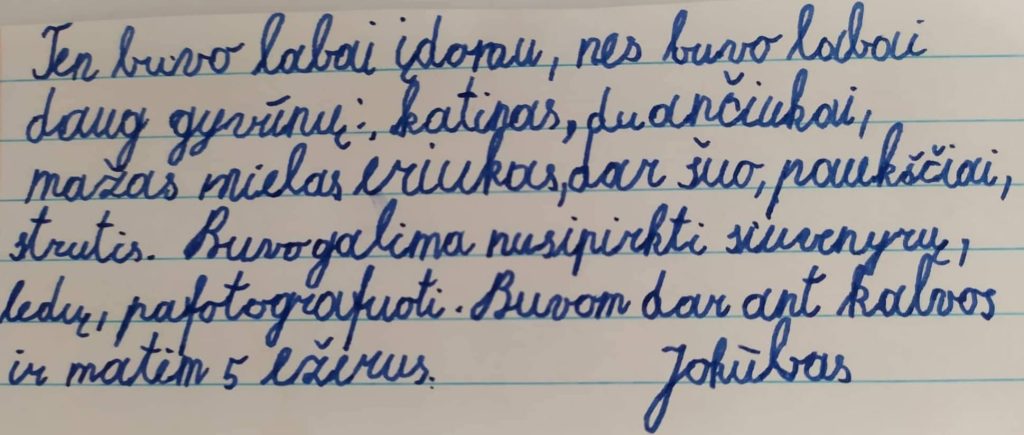 Ten buvo labai įdomu, nes buvo labai
daug gyvūnų:, katinas, du ančiukai,
mažas mielas eriukas, dar šuo, paukščiai,
strutis. Buvo galima nusipirkti siuvenyrų,
ledų, pafotografuoti. Buvom dar ant kalvos
ir matėm 5 ežerus. Jokūbas